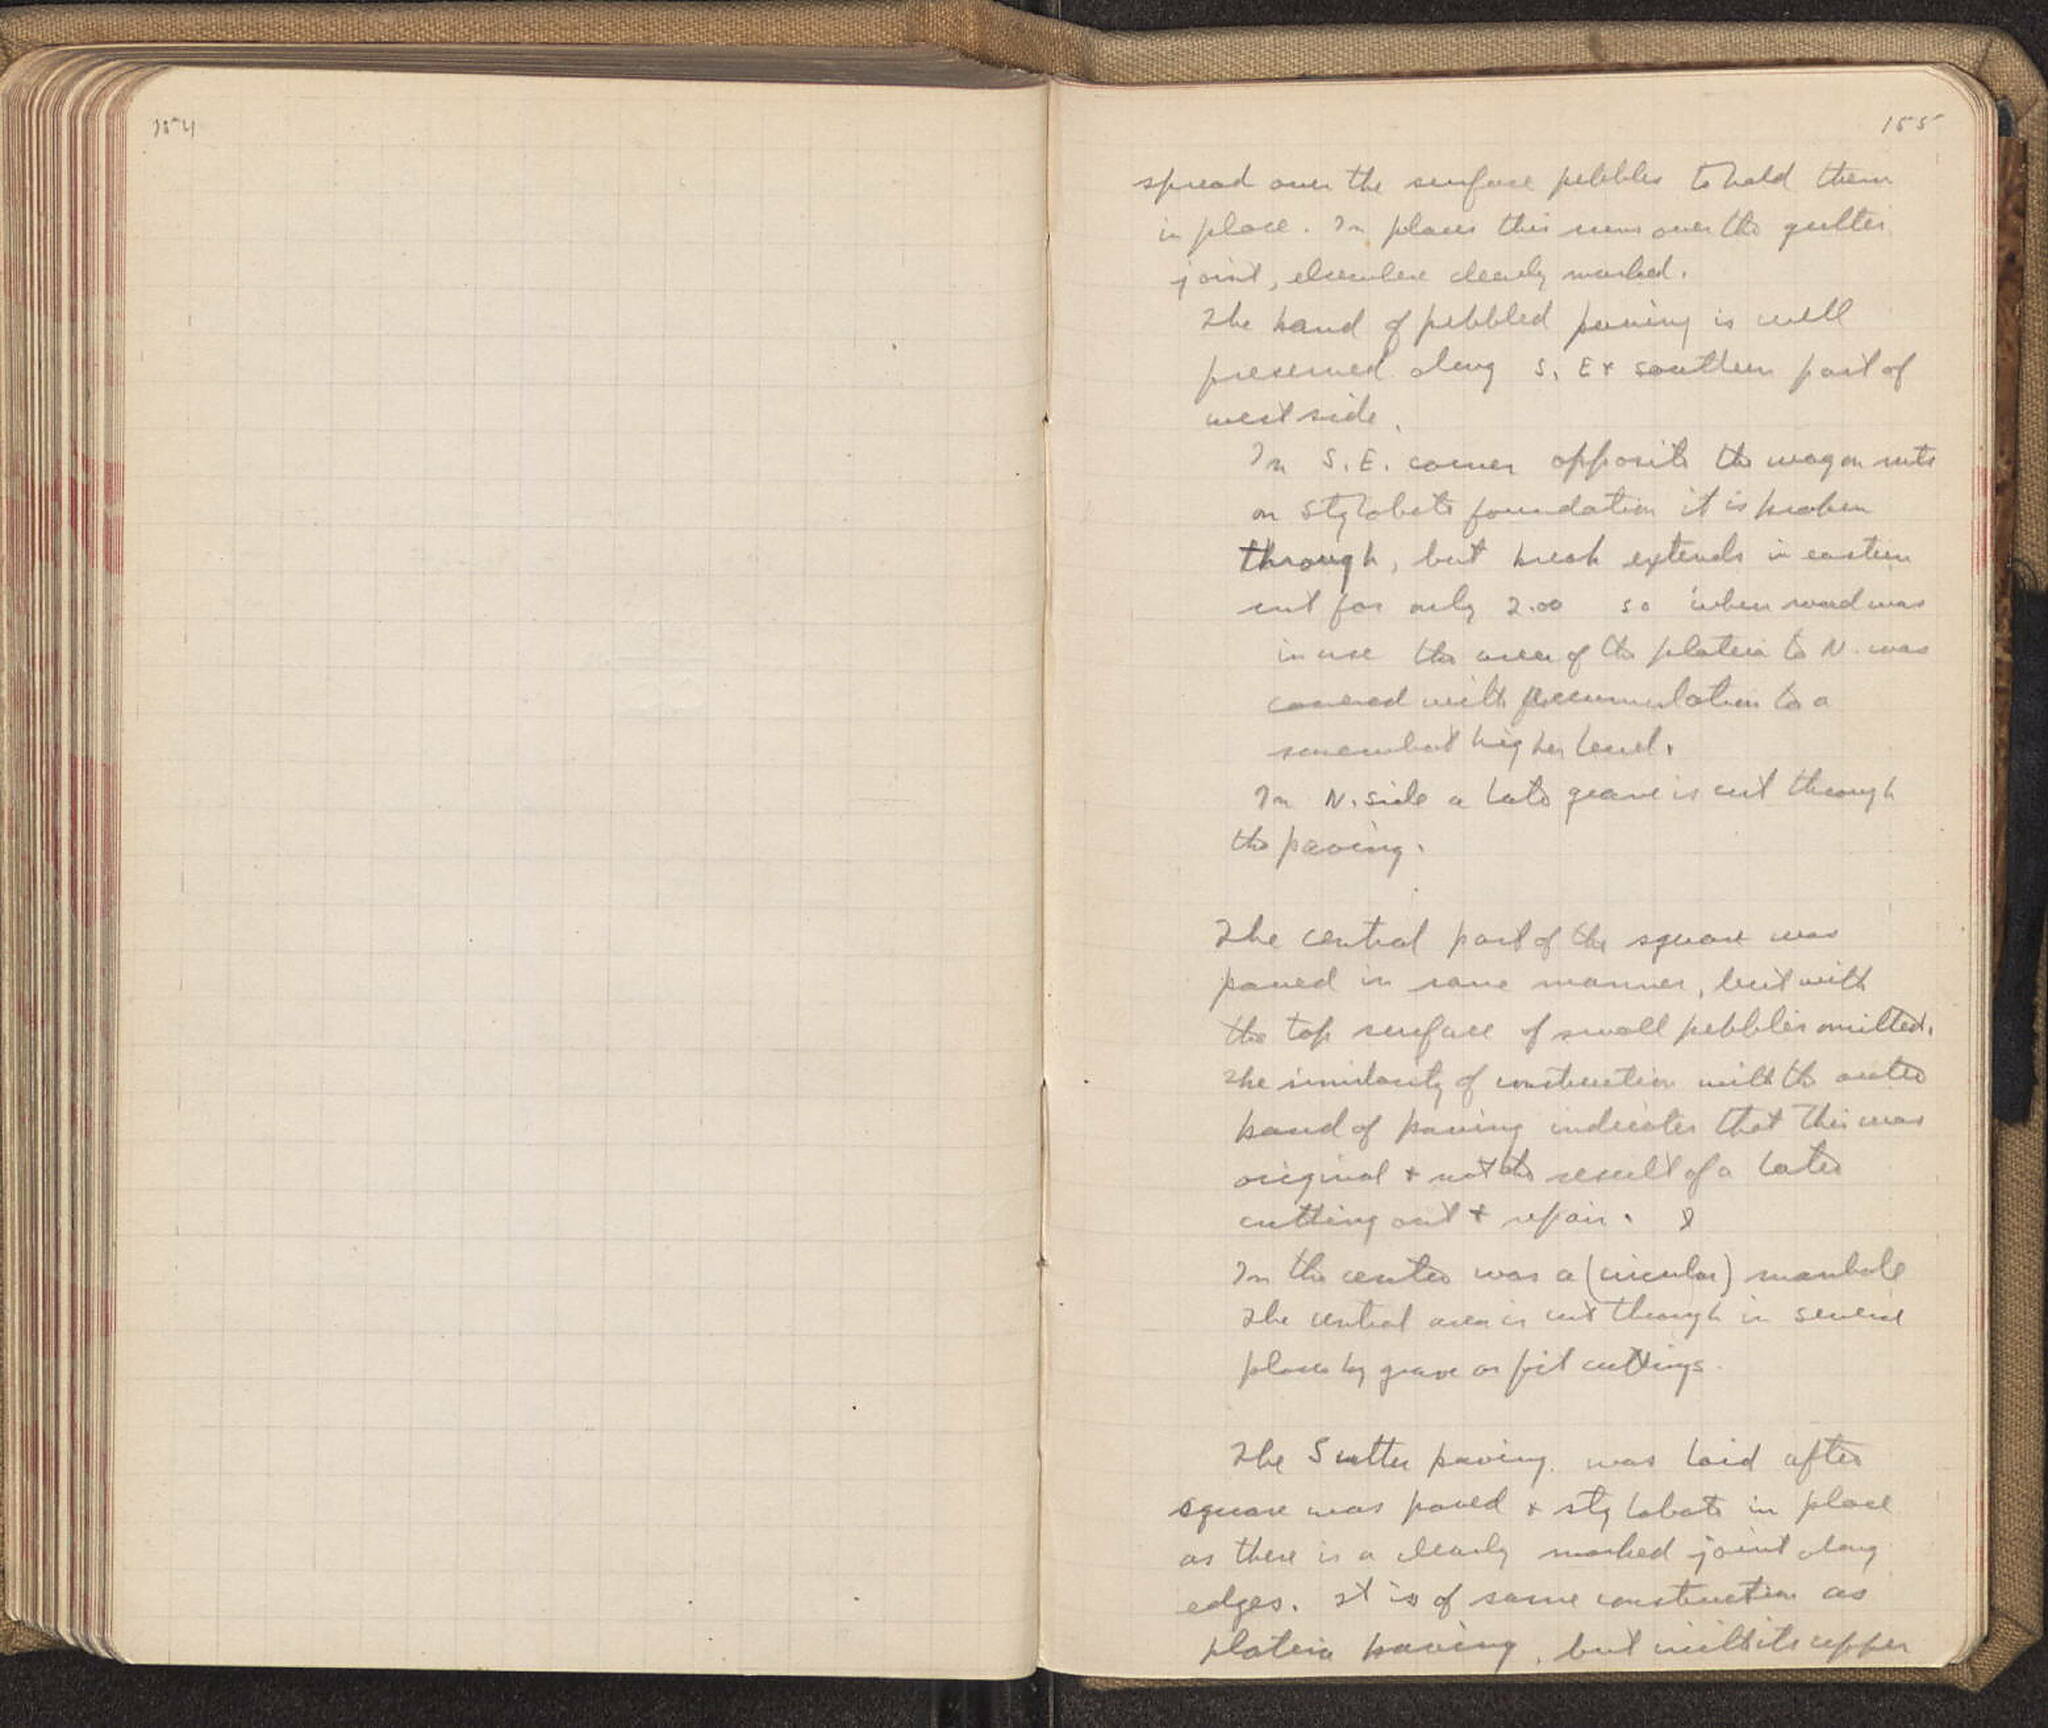 154
155
spread over the surface pebbles to hold them
in place. In places this runs over the gutter
joint, elsewhere clearly marked.
The band of pebbled paving is well
preserved along S, E + southern part of
west side.
In S.E. corner opposite the wagon ruts
on stylobate foundation it is broken
through, but break extends in eastern
rut for only 2.00 so when road was
in use the area of the plateia to N. was
covered with accumulation to a
somewhat higher level.
In N. side a late grave is cut through
the paving.
The central part of the square was
paved in same manner, but with
the top surface of small pebbles omitted.
The similarity of construction with the outer
band of paving indicates that this was
original + not the result of a later
cutting out + repair.
In the center was a (circular) manhole
The central area is cut through in several
places by grave or pit cuttings.
The Gutter paving was laid after
square was paved + stylobate in place
as there is a clearly marked joint along
edges. It is of same construction as
plateia paving, but with its upper